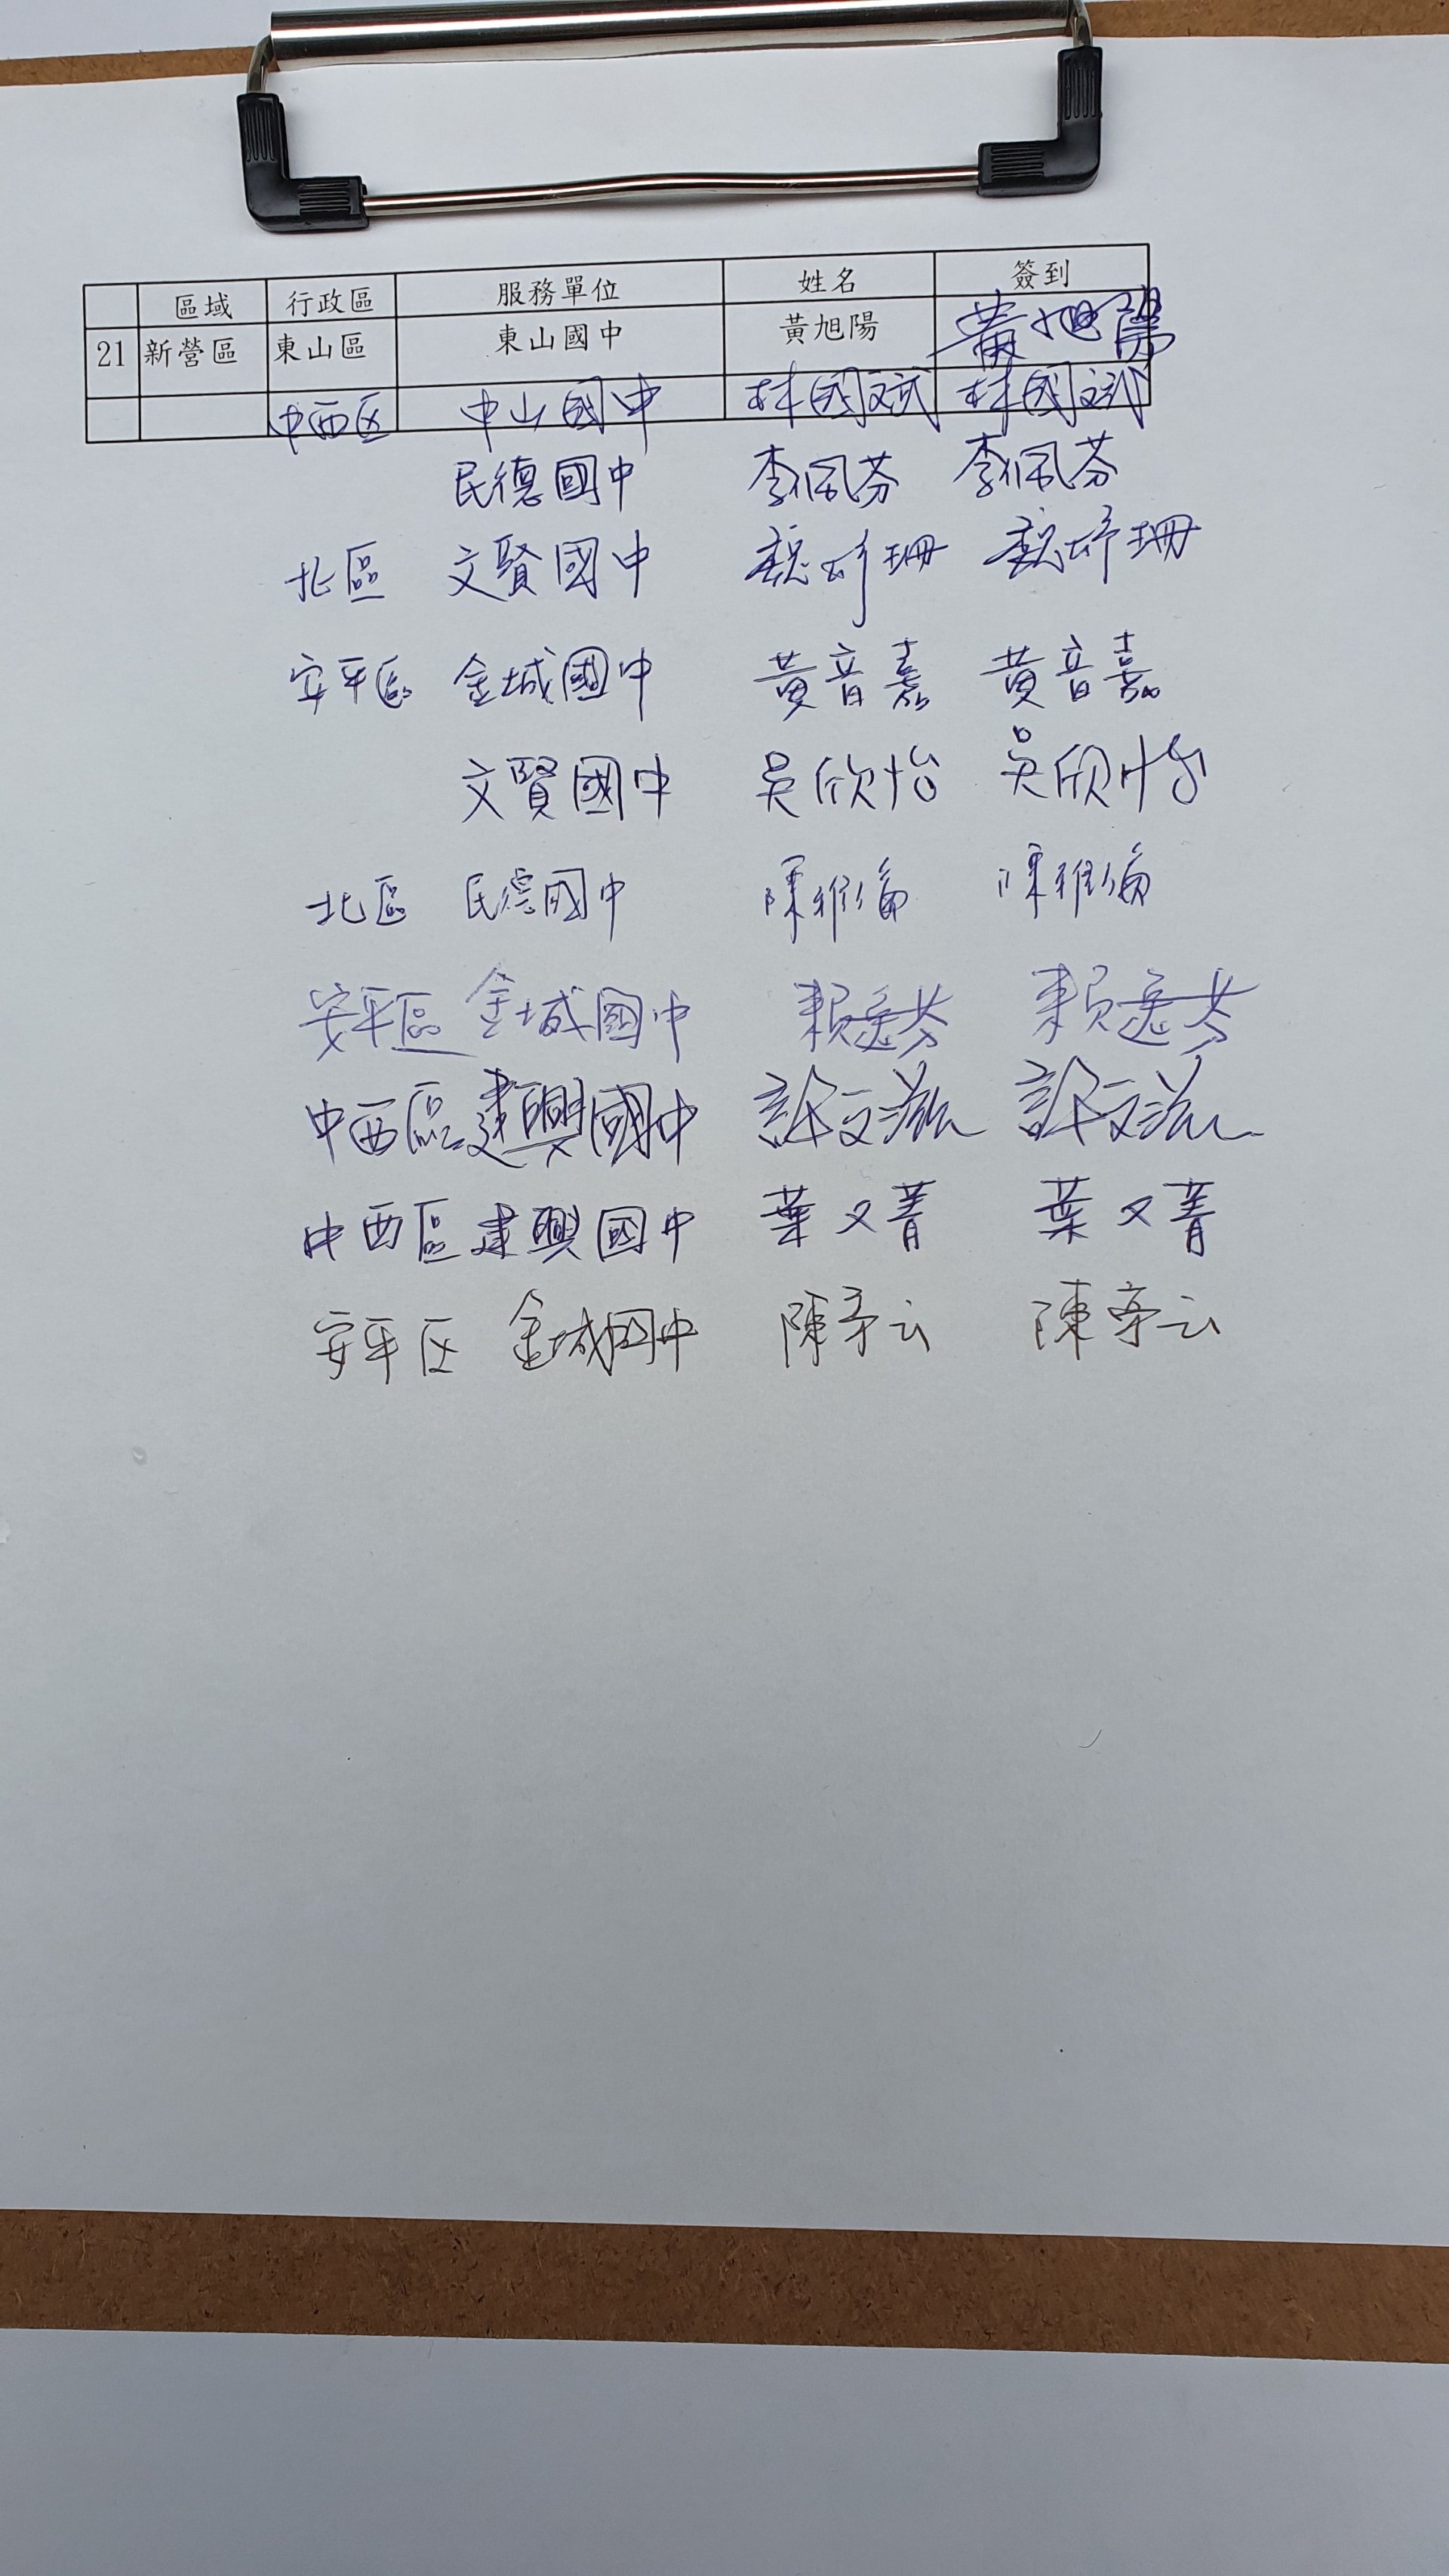 區域 行政區 服務單位 姓名 簽到
21 新營區 東山區 東山國中 黃旭陽 黃旭陽
中西区 中山國中 林國斌 林國斌
民德國中 李佩芬 李佩芬
北區 文賢國中 魏妤珊 魏妤珊
安平區 金城國中 黃音嘉 黃音嘉
文賢國中 吳欣怡 吳欣怡
北區 民德國中 陳雅倫 陳雅倫
安平區 金城國中 賴逸芬 賴逸芬
中西區 建興國中 許文滋 許文滋
中西區 建興國中 葉又菁 葉又菁
安平区 金城国中 陳云 陳云